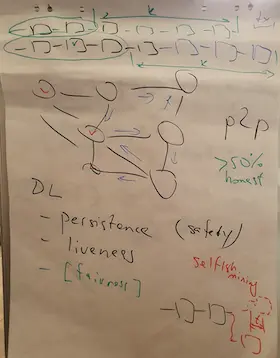 k
k
p2p
>50%
honest
DL
- persistence (safety)
- liveness
- [fairness]
selfish
mining